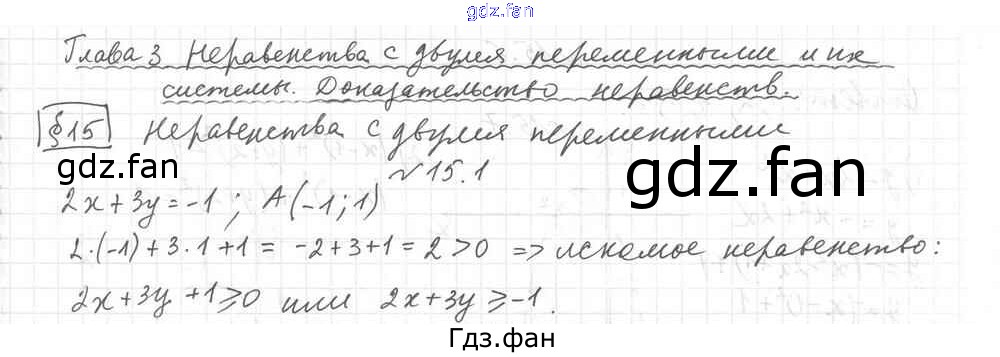 gdz.fan
Глава 3 Неравенства с двумя переменными и их
системы. Доказательство неравенств.
§15 Неравенства с двумя переменными
gdz.fan
gdz.fan
№15.1
2x+3y=-1; A(-1;1)
2·(-1)+3·1+1 = -2+3+1=2>0 => искомое неравенство:
2x+3y+1⩾0 или 2x+3y⩾-1.
Гдз.фан